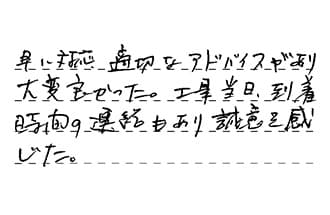 早い対応 適切なアドバイスがあり
大変良かった。工事当日、到着
時間の連絡もあり誠意を感
じた。